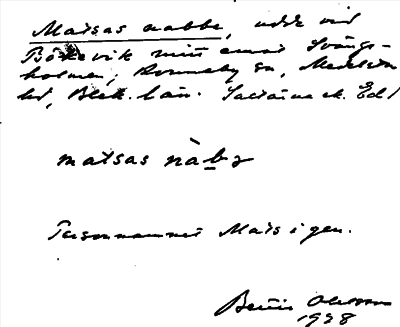 Matsas nabbe, udde vid
Bökevik mitt emot Svängs-
holmen, Ronneby sn, Medelsta
hd, Blek. län. Saltsjö ek. Ed1
matsas nàbə
Personnamnet Mats i gen.
Bertil Ohlsson
1928